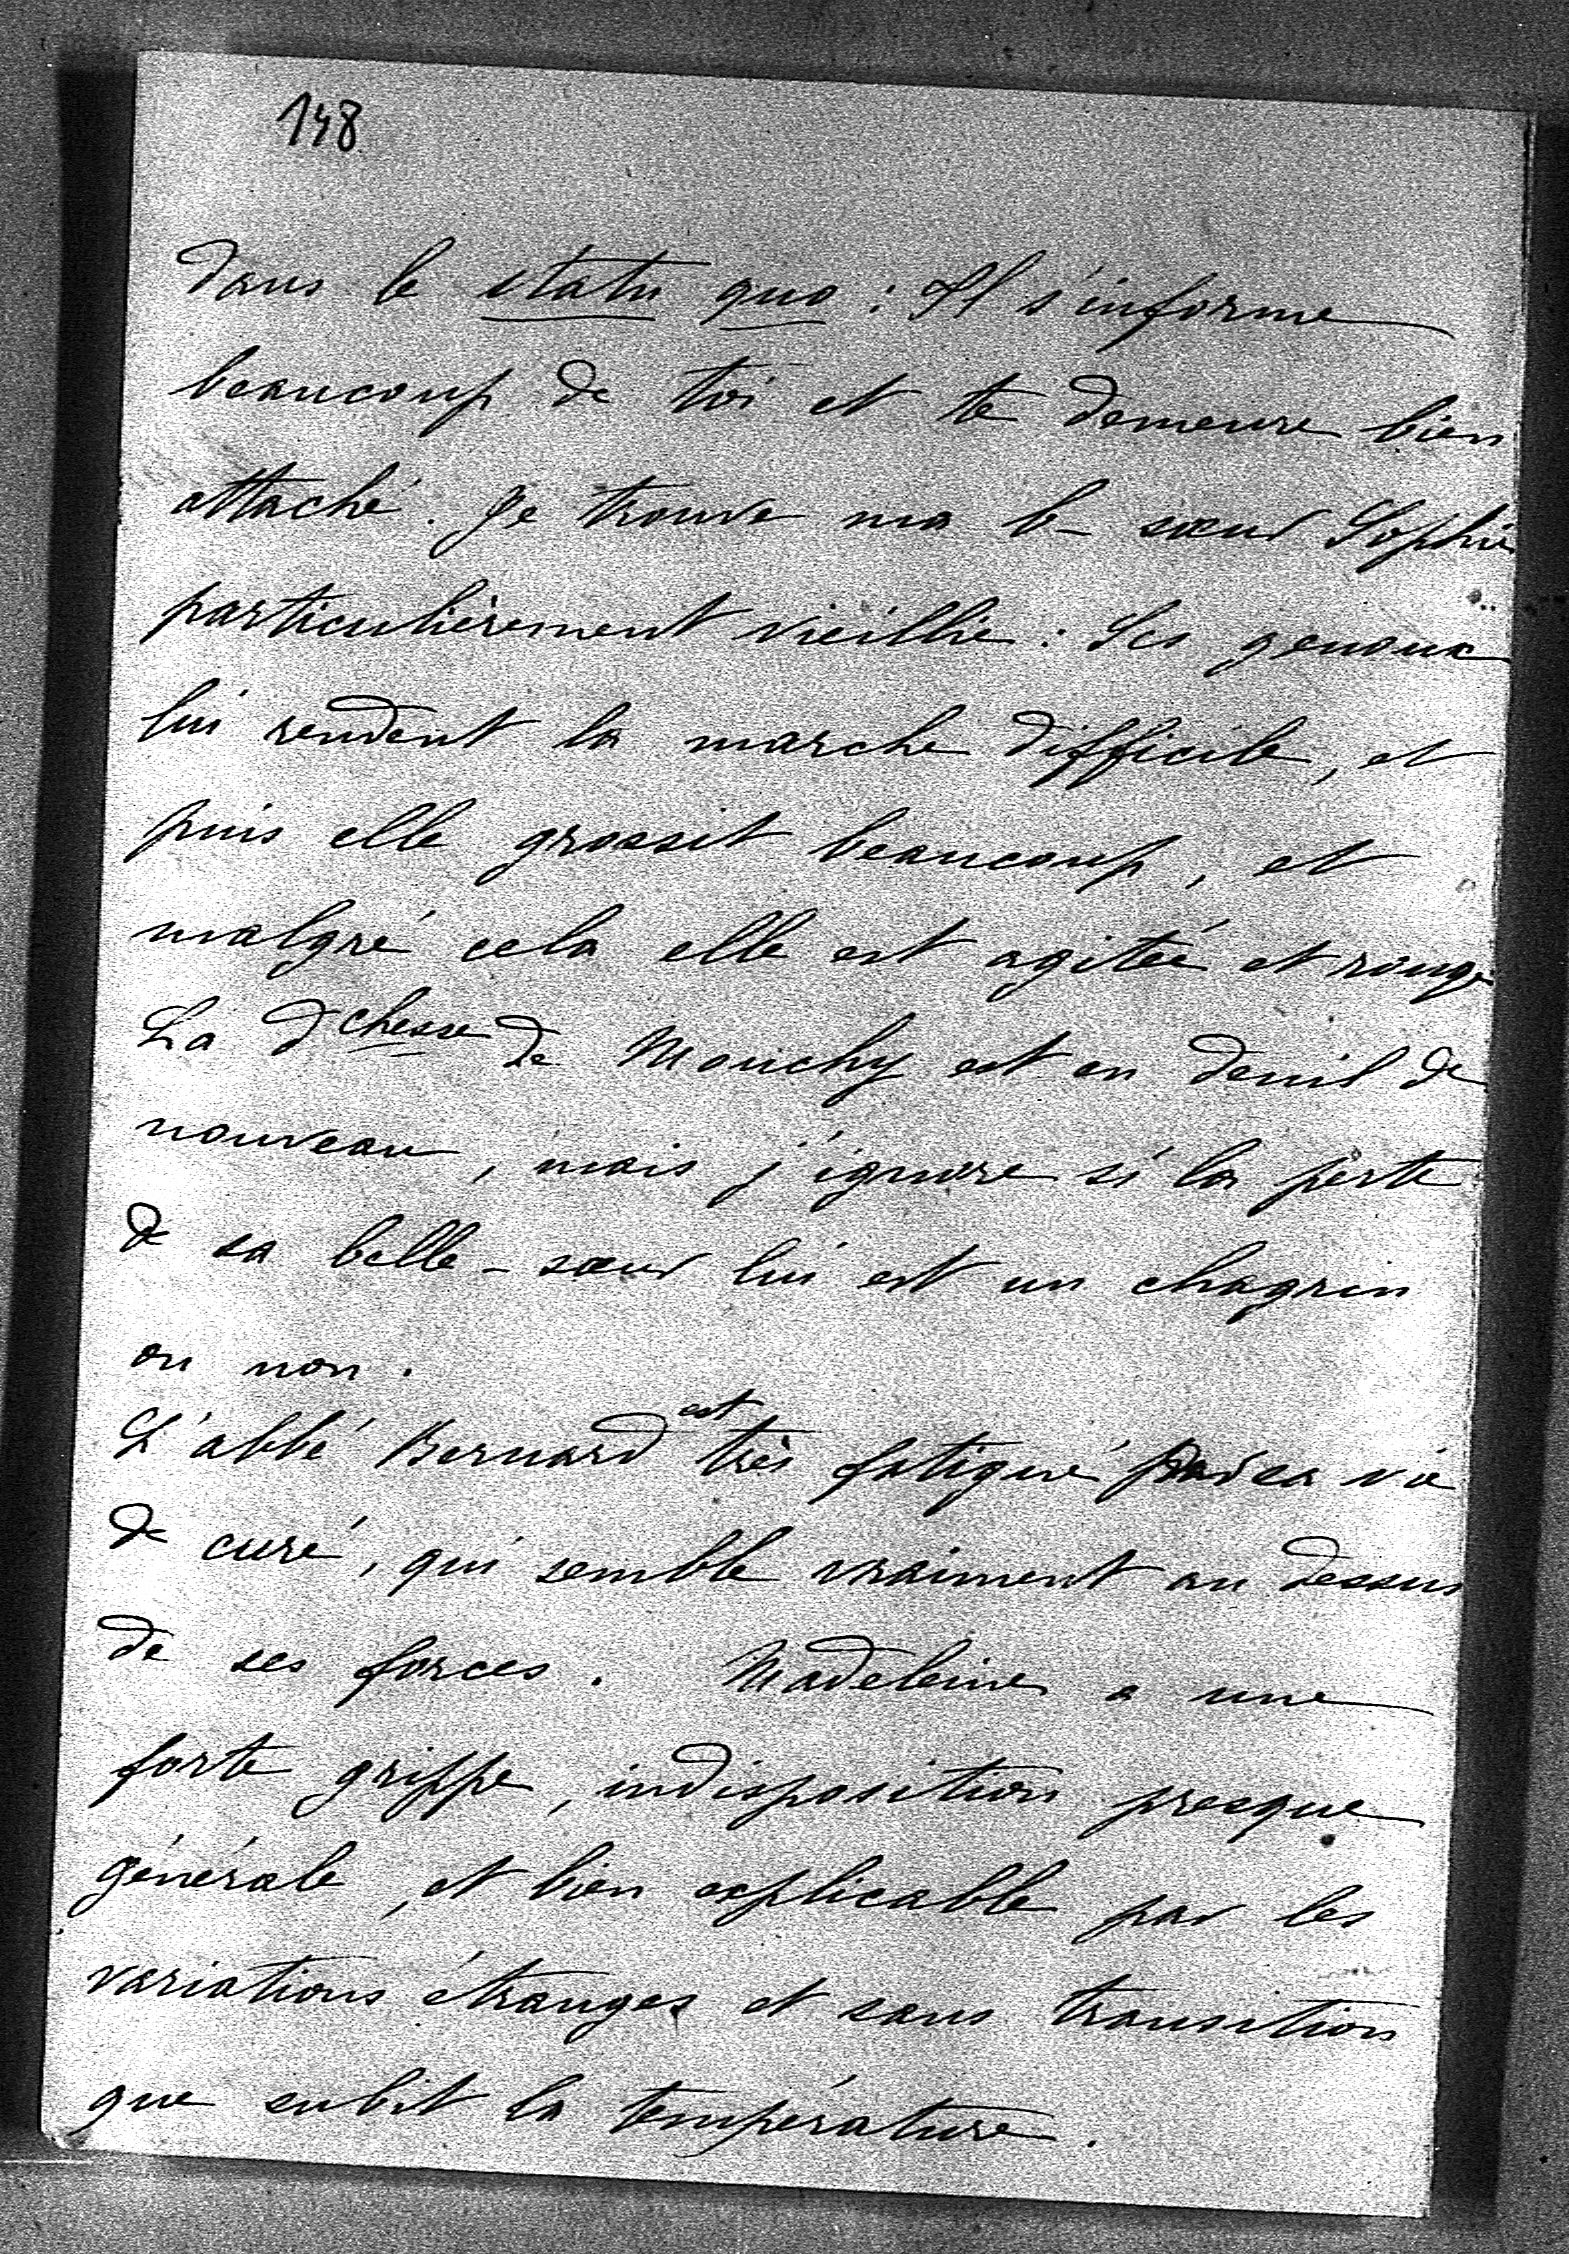 148
dans le statu quo : Il s'informe
beaucoup de toi et te demeure bien
attaché. Je trouve ma b- sœur Sophie
particulièrement vieillie : Ses genoux
lui rendent la marche difficile, et
puis elle grossit beaucoup, et
malgré cela elle est agitée et rouge
La dchesse de Mouchy est en deuil de
nouveau, mais j'ignore si la perte
de sa belle-sœur lui est un chagrin
ou non.
L'abbé Bernard est très fatigué par sa vie
de curé, qui semble vraiment au dessus
de ses forces. Madeleine a une
forte grippe, indisposition presque
générale, et bien explicable par les
variations étranges et sans transition
que subit la température.